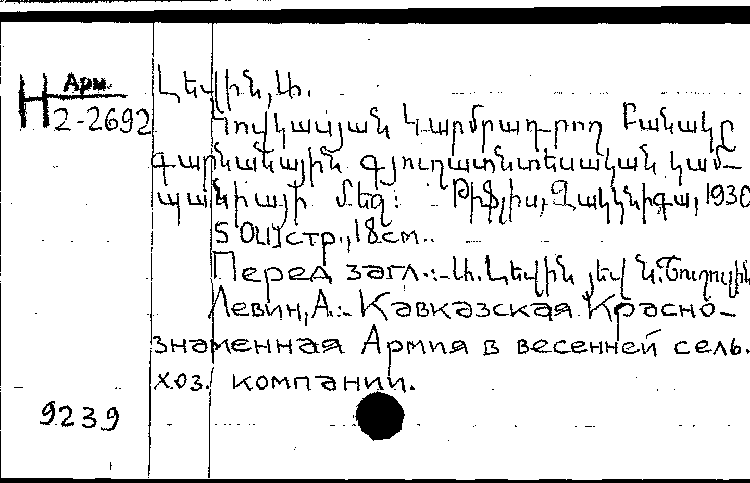 Арм.
Н
2-2692
Լեվին, Ա.
Կովկասյան Կարմրադրող Բանակը
գարնանային գյուղատնտեսական կամ-
պանիայի մեջ: Թիֆլիս, Զակկնիգա, 1930
50[1] стр., 18см.
Перед загл.:- Ա. Լեվին յեվ Ն.
Левин, А.:- Кавказская Красно-
знаменная Армия в весенней сель.
хоз. компании.
9239